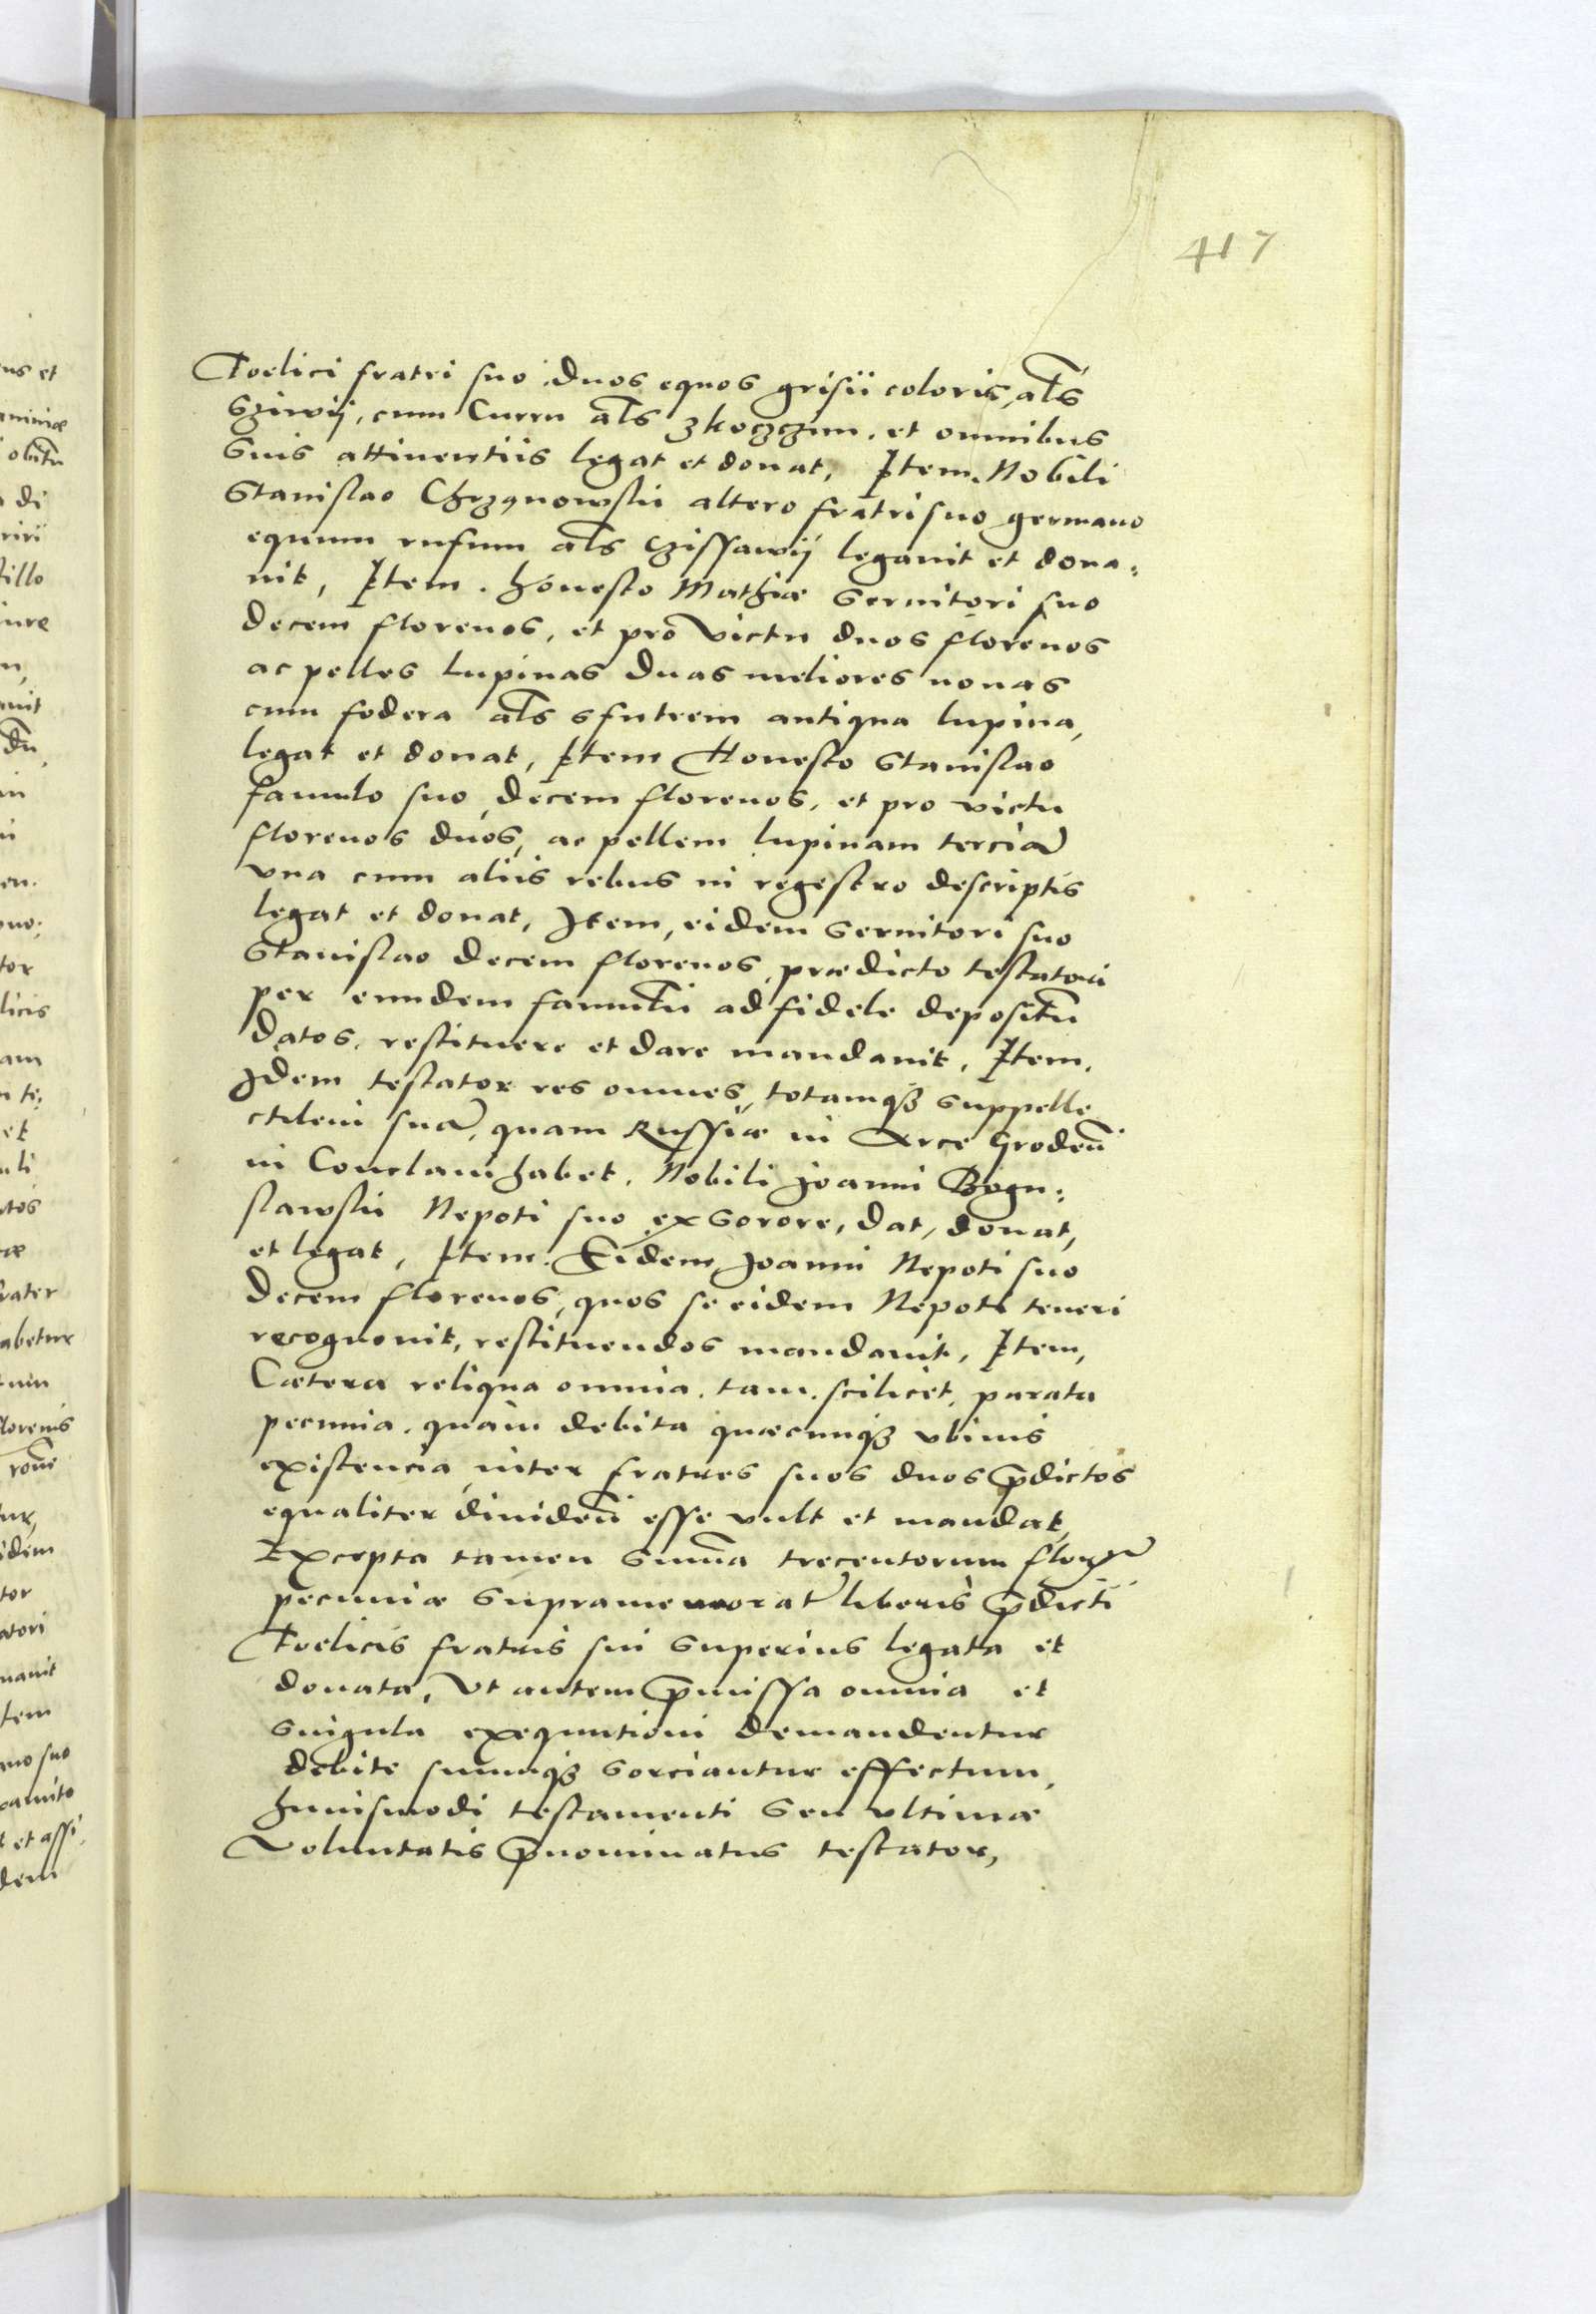 417
Foelici fratri suo duos equos grisii coloris, als
Sziwÿ, cum Curru als zkoczczim, et omnibus
suis attinentiis legat et donat, Item. Nobili
Stanislao Chrzanowski altero fratri suo germano
equum rufum als Czissawÿ legavit et dona:
vit, Item. honesto Mathiæ servitori suo
decem florenos, et pro victu duos florenos
ac pelles lupinas duas meliores novas
cum fodera als sfutrem antiqua lupina,
legat et donat, Item Honesto Stanislao
famulo suo decem florenos, et pro victu
florenos duos, ac pellem lupinam terciā
vna cum aliis rebus in regestro descriptis
legat et donat, Item, eidem servitori suo
Stanislao decem florenos prædicto testatori
per eundem famulū ad fidele depositū
datos, restituere et dare mandavit, Item,
Idem testator res omnes, totamqȝ suppelle
ctilem suā, quam Russiæ in Arce Grodeñ
in Conclavi habet, Nobili Joanni Bogu:
slawski Nepoti suo ex sorore, dat, donat,
et legat, Item. Eidem Joanni Nepoti suo
decem florenos, quos se eidem Nepoti teneri
recognovit, restituendos mandavit, Item,
Cætera reliqua omnia, tam, scilicet, parata
pecunia, quàm debita quæcunqȝ vbivis
existencia inter fratres suos duos p̄dictos
equaliter dividen̄ esse vult et mandat,
Excepta tamen sum̄a trecentorum floꝝ
pecuniæ supramemorat̄ liberis p̄dicti
Foelicis fratris sui superius legata et
donata, Vt autem p̄missa omnia et
singula exequutioni demandentur
debite suumqȝ sorciantur effectum,
huiusmodi testamenti seu vltimæ
Voluntatis p̄nominatus testator,